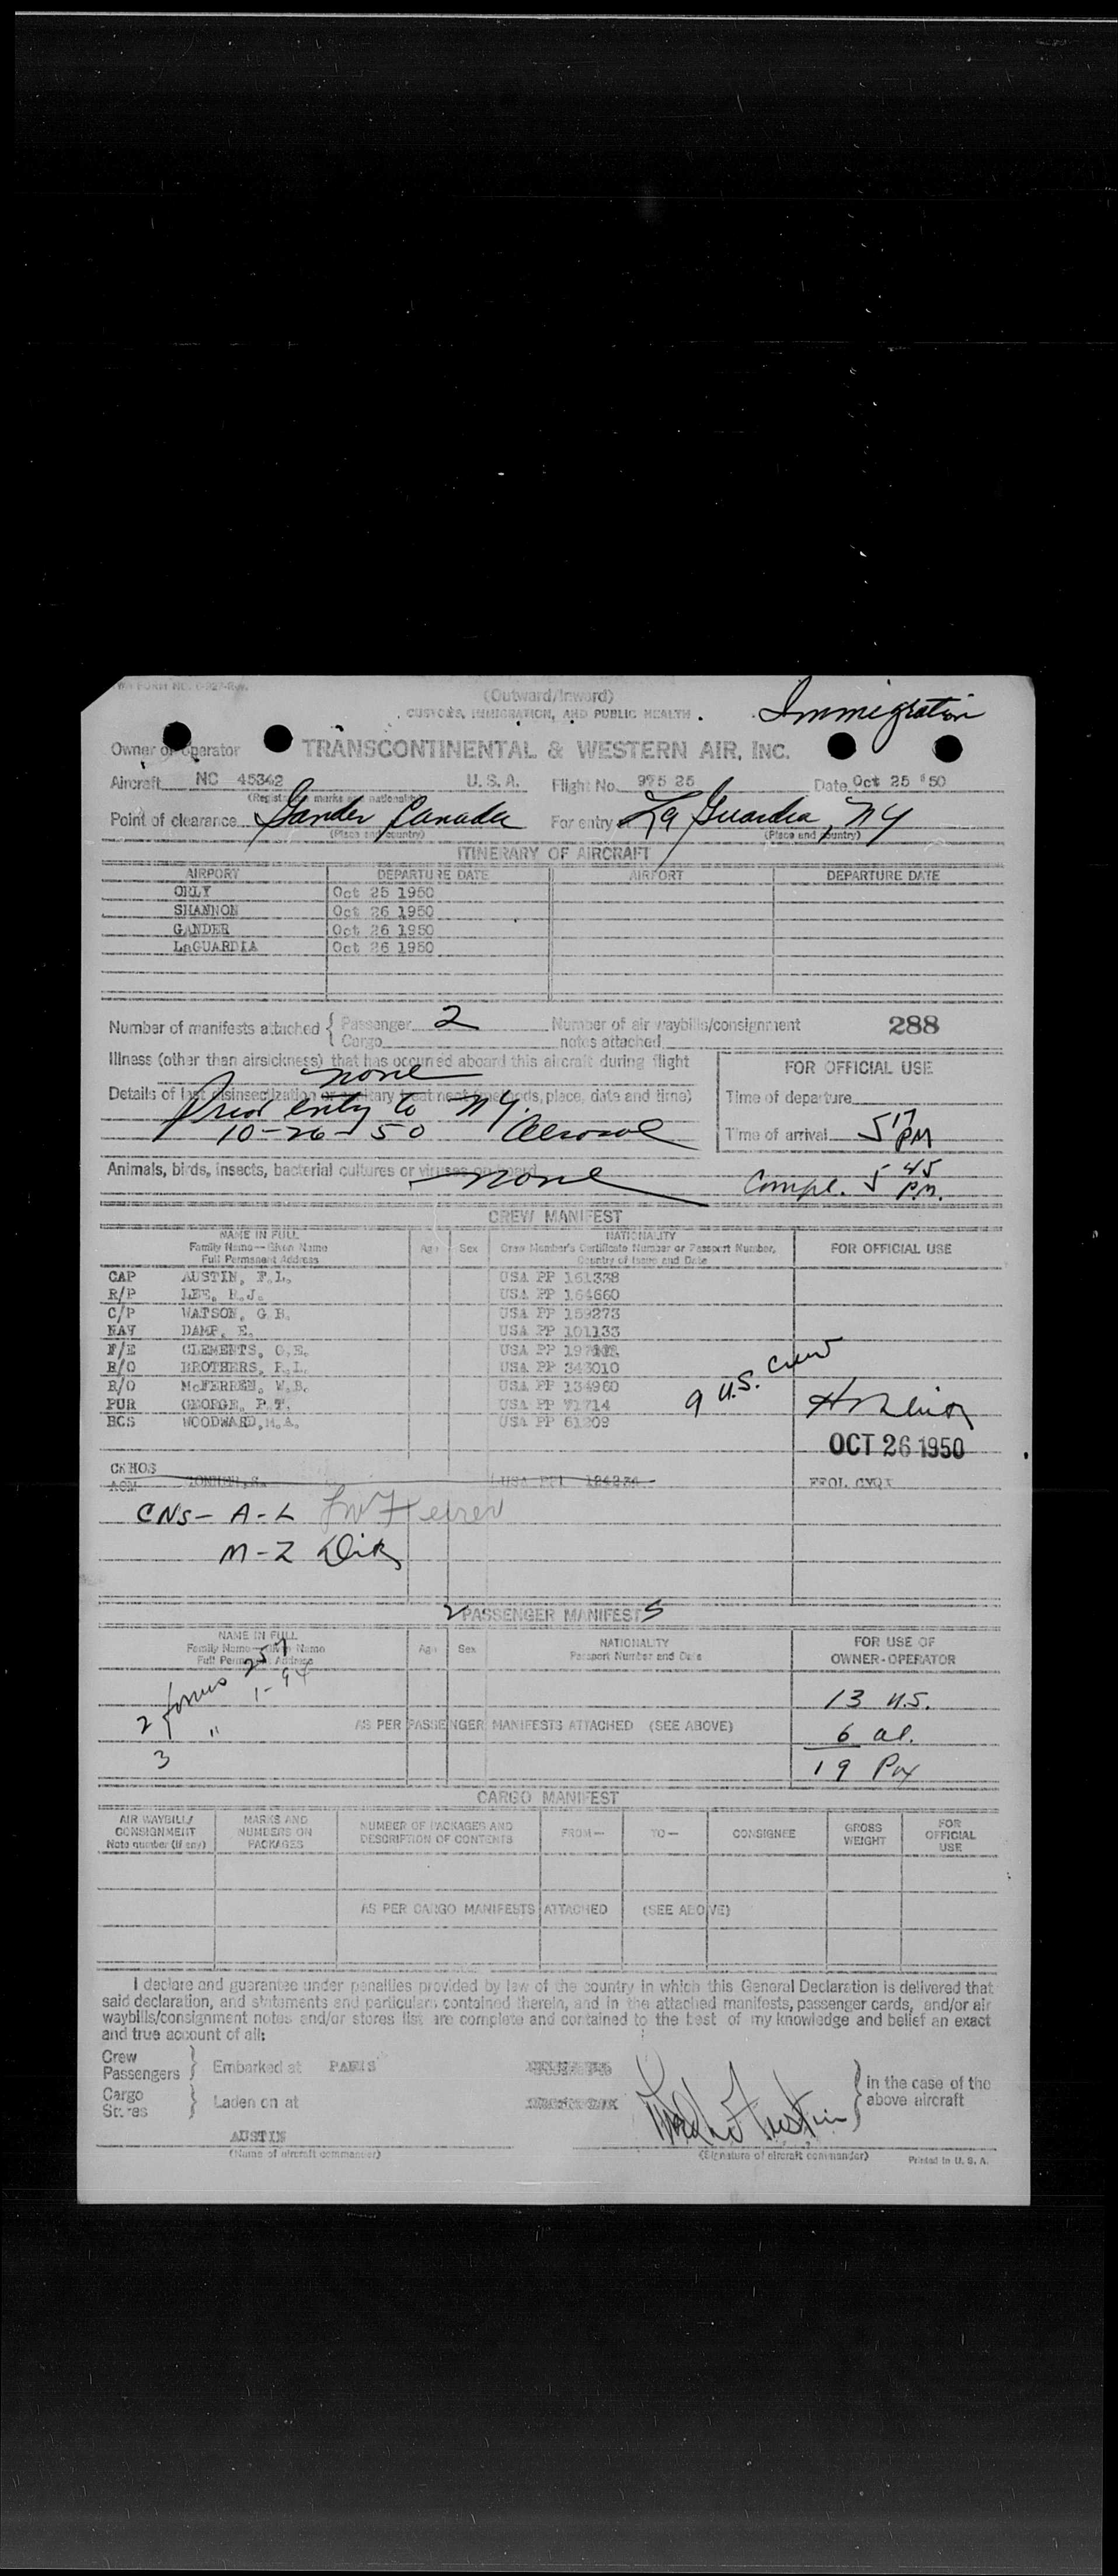 (Outward/Inward)
CUSTOMS, IMMIGRATION, AND PUBLIC HEALTH
Immigration
Owner or Operator TRANSCONTINENTAL & WESTERN AIR, INC.
Aircraft NC 45342 U.S.A. Flight No. 975 25 Date Oct 25 '50
(Registration marks and nationality)
Point of clearance Gander Canada For entry La Guardia, NY
(Place and country) (Place and country)
ITINERARY OF AIRCRAFT
AIRPORT DEPARTURE DATE AIRPORT DEPARTURE DATE
ORLY Oct 25 1950
SHANNON Oct 26 1950
GANDER Oct 26 1950
LaGUARDIA Oct 26 1950
Number of manifests attached { Passenger 2 Number of air waybills/consignment 288
Cargo notes attached
Illness (other than airsickness) that has occurred aboard this aircraft during flight
none
FOR OFFICIAL USE
Details of last disinsectization or sanitary treatment (methods, place, date and time)
Time of departure
Prior entry to NY.
10-26-50 Aerosol
Time of arrival 5 17 PM
Animals, birds, insects, bacterial cultures or viruses on board none
Compl. 5 45 P.M.
CREW MANIFEST
NAME IN FULL
Family Name—Given Name
Full Permanent Address
Age Sex
NATIONALITY
Crew Member's Certificate Number or Passport Number,
Country of Issue and Date
FOR OFFICIAL USE
CAP AUSTIN, F.L. USA PP 161338
R/P LEE, R.J. USA PP 164660
C/P WATSON, G.B. USA PP 159273
NAV DAMP, E. USA PP 101133
F/E CLEMENTS, O.E. USA PP
R/O BROTHERS, P.L. USA PP 343010
R/O McFERREN, W.B. USA PP 134960
PUR GEORGE, P.T. USA PP 71714
HOS WOODWARD, M.A. USA PP 61209
9 U.S. Crew
OCT 26 1950
CNS- A-L
M-Z
2 PASSENGER MANIFESTS
NAME IN FULL
Family Name—Given Name
Full Permanent Address
Age Sex
NATIONALITY
Passport Number and Date
FOR USE OF
OWNER-OPERATOR
2 forms 257
3 " I-94
13 U.S.
AS PER PASSENGER MANIFESTS ATTACHED (SEE ABOVE)
6 al.
19 Pax
CARGO MANIFEST
AIR WAYBILL/
CONSIGNMENT
Note number (if any)
MARKS AND
NUMBERS ON
PACKAGES
NUMBER OF PACKAGES AND
DESCRIPTION OF CONTENTS
FROM—
TO—
CONSIGNEE
GROSS
WEIGHT
FOR
OFFICIAL
USE
AS PER CARGO MANIFESTS ATTACHED (SEE ABOVE)
I declare and guarantee under penalties provided by law of the country in which this General Declaration is delivered that
said declaration, and statements and particulars contained therein, and in the attached manifests, passenger cards, and/or air
waybills/consignment notes and/or stores list are complete and contained to the best of my knowledge and belief an exact
and true account of all:
Crew
Passengers } Embarked at PARIS
Cargo
Stores } Laden on at
} in the case of the
above aircraft
AUSTIN
(Name of aircraft commander) (Signature of aircraft commander) Printed in U. S. A.